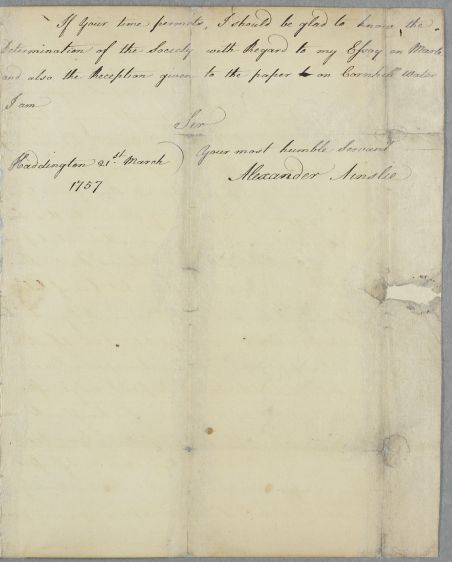 If Your time permits, I should be glad to know the
Determination of the Society with Regard to my Essay on Marle
and also the Reception given to the paper on Cornhill Water
I am
Sir
Your most humble Servant
Haddington 21st March
Alexander Ainslie
1757